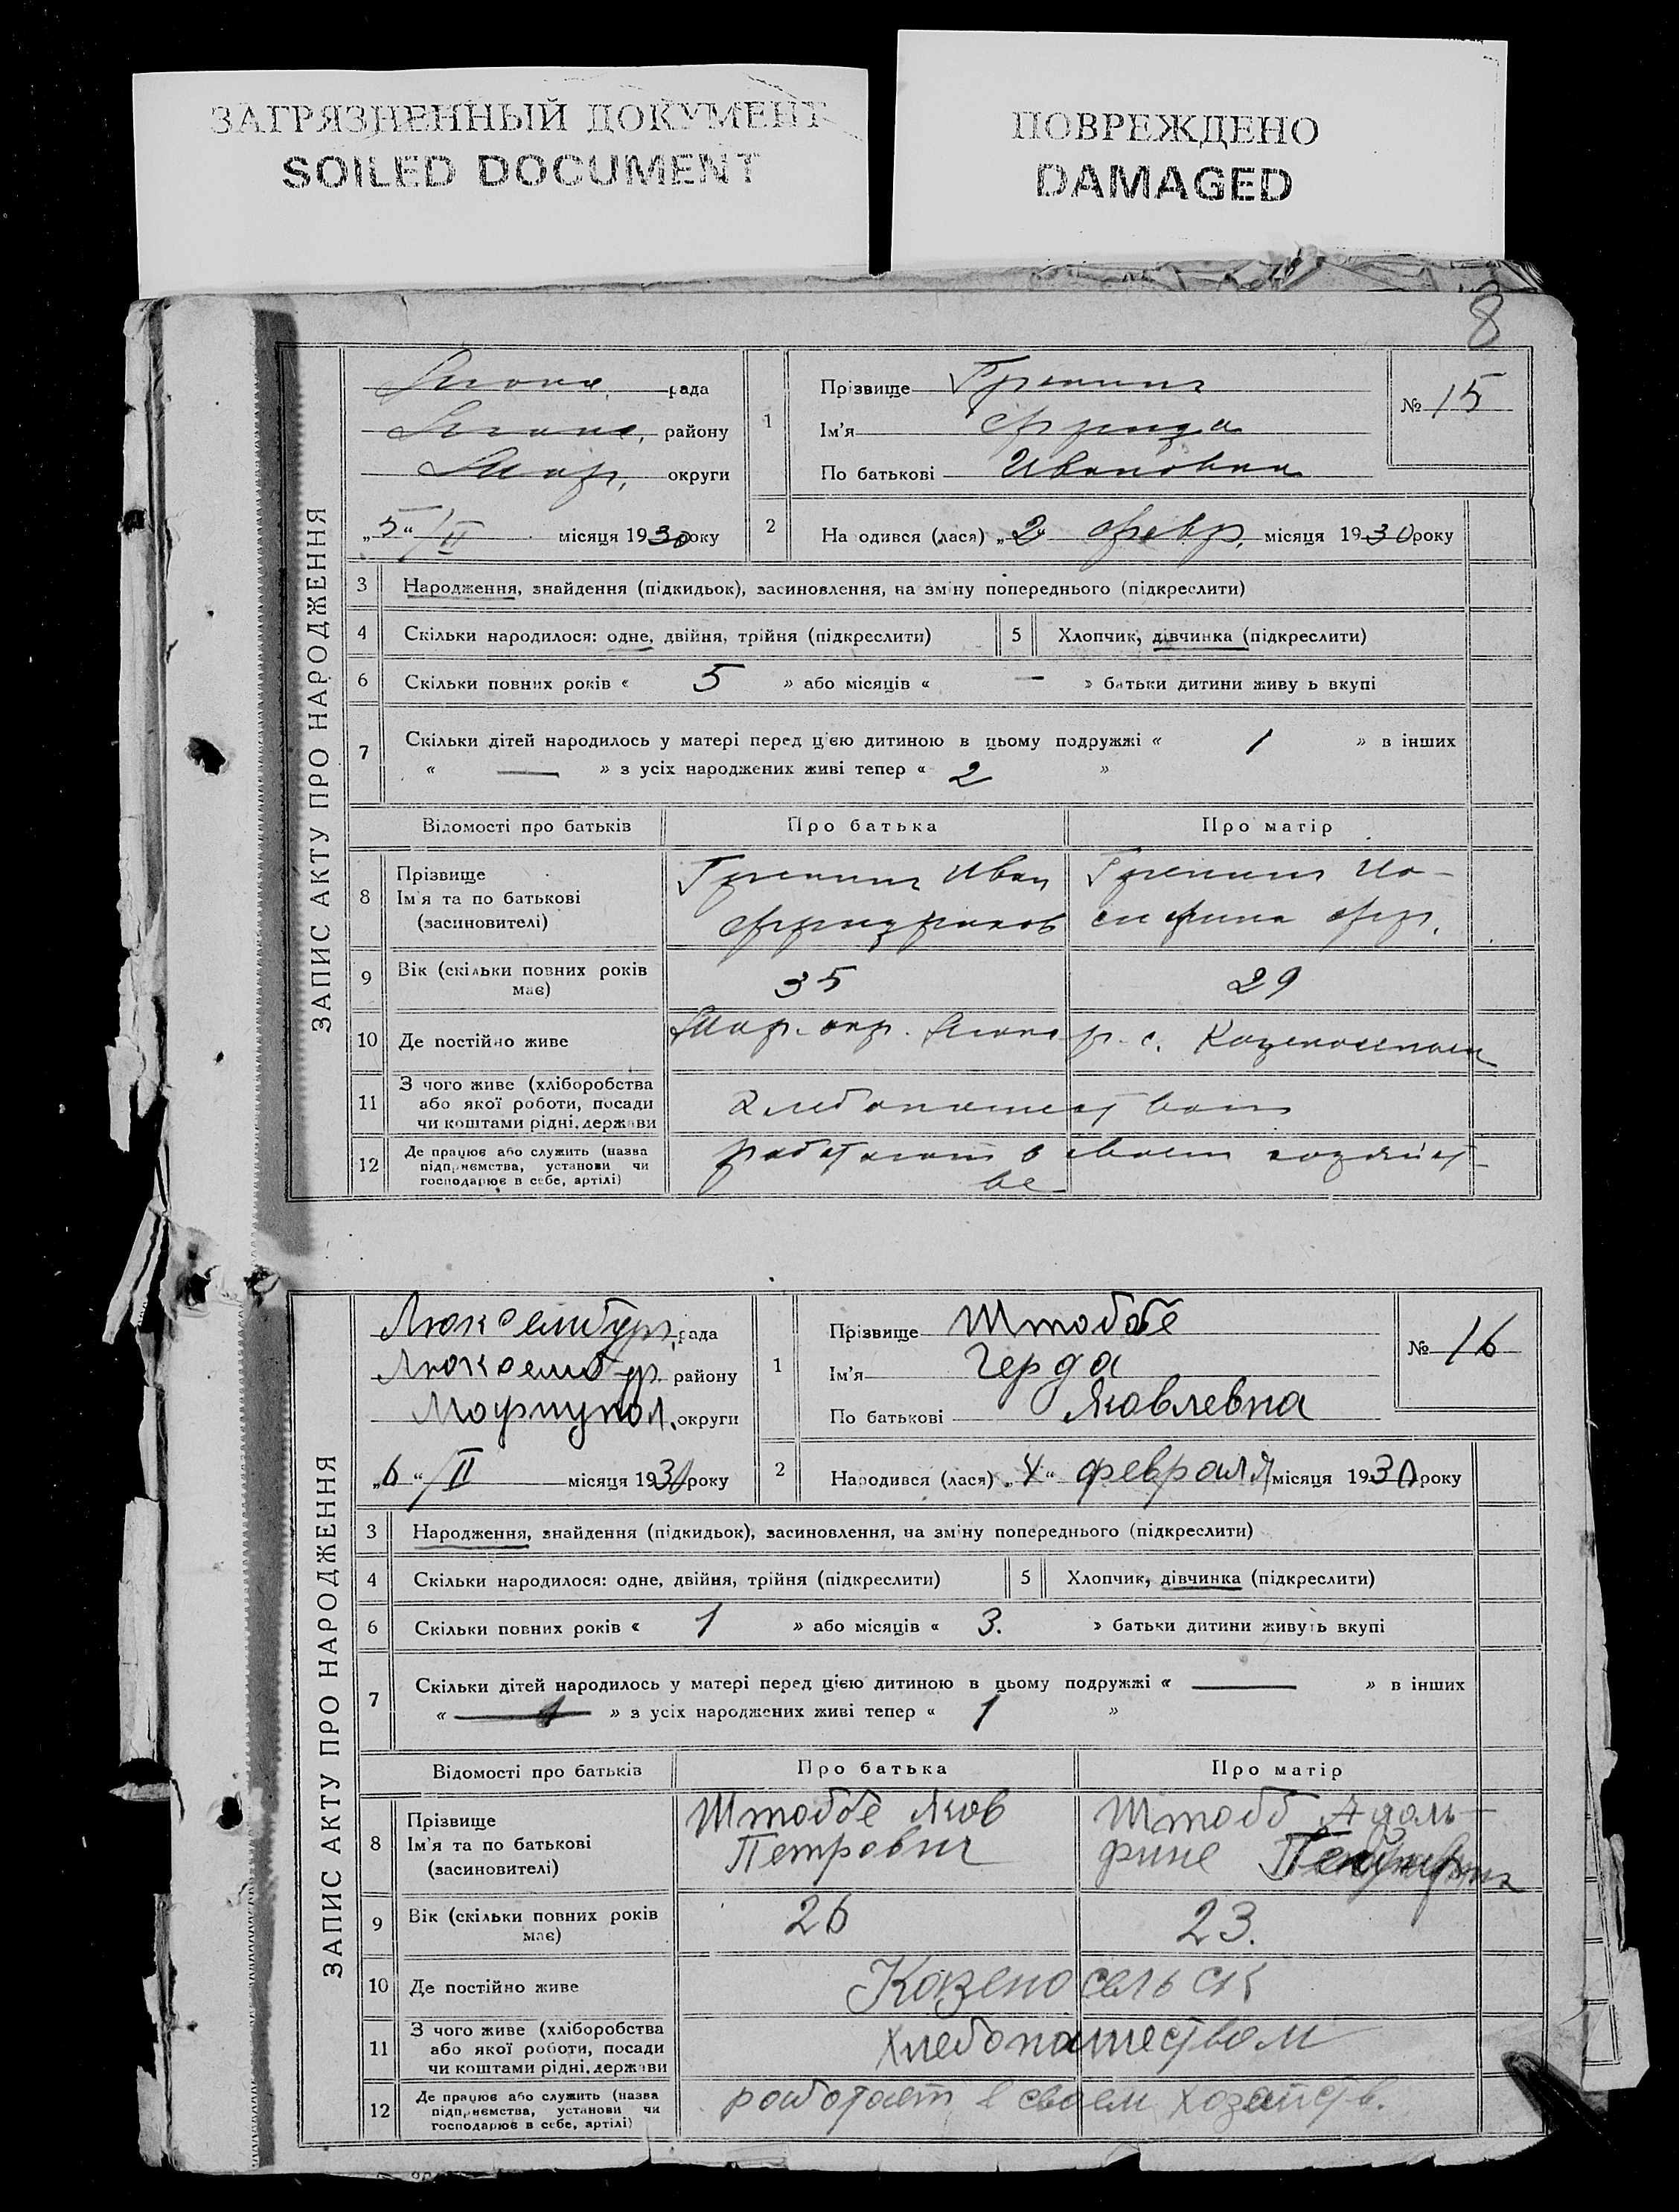 ЗАГРЯЗНЕННЫЙ ДОКУМЕНТ
SOILED DOCUMENT
ПОВРЕЖДЕНО
DAMAGED
8
ЗАПИС АКТУ ПРО НАРОДЖЕННЯ
рада
району
Мар. округи
„5“/II місяця 1930 року
1
Прізвище
Ім'я Фрида
По батькові Ивановна
№ 15
2 На одився (лася) „2“ февр. місяця 1930 року
3 Народження, знайдення (підкидьок), засиновлення, на зміну попереднього (підкреслити)
4 Скільки народилося: одне, двійня, трійня (підкреслити) 5 Хлопчик, дівчинка (підкреслити)
6 Скільки повних років « 5 » або місяців « — » батьки дитини живу ь вкупі
7 Скільки дітей народилось у матері перед цією дитиною в цьому подружжі « 1 » в інших
« — » з усіх народжених живі тепер « 2 »
Відомості про батьків Про батька Про матір
8 Прізвище
Ім'я та по батькові
(засиновителі)
Иван
Фридрихов
Ио-
сифина Фр.
9 Вік (скільки повних років має) 35 29
10 Де постійно живе Мар. окр. р. с.
11 З чого живе (хліборобства
або якої роботи, посади
чи коштами рідні, держави
Хлебопашеством
12 Де працює або служить (назва
підприємства, установи чи
господарює в себе, артілі)
работают в своем хозяйст-
ве
ЗАПИС АКТУ ПРО НАРОДЖЕННЯ
Люксембург. рада
Люксембур. району
Мариупол. округи
„6“/II місяця 1930 року
1
Прізвище Штоббе
Ім'я Герда
По батькові Яковлевна
№ 16
2 Народився (лася) „4“ февраля місяця 1930 року
3 Народження, знайдення (підкидьок), засиновлення, на зміну попереднього (підкреслити)
4 Скільки народилося: одне, двійня, трійня (підкреслити) 5 Хлопчик, дівчинка (підкреслити)
6 Скільки повних років « 1 » або місяців « 3. » батьки дитини живуть вкупі
7 Скільки дітей народилось у матері перед цією дитиною в цьому подружжі « — » в інших
« — » з усіх народжених живі тепер « 1 »
Відомості про батьків Про батька Про матір
8 Прізвище
Ім'я та по батькові
(засиновителі)
Штоббе Яков
Петрович
Штобб Адоль-
фине
9 Вік (скільки повних років має) 26 23.
10 Де постійно живе Казеносельск
11 З чого живе (хліборобства
або якої роботи, посади
чи коштами рідні, держави
Хлебопашеством
12 Де працює або служить (назва
підприємства, установи чи
господарює в себе, артілі)
работает в своем хозяйств.